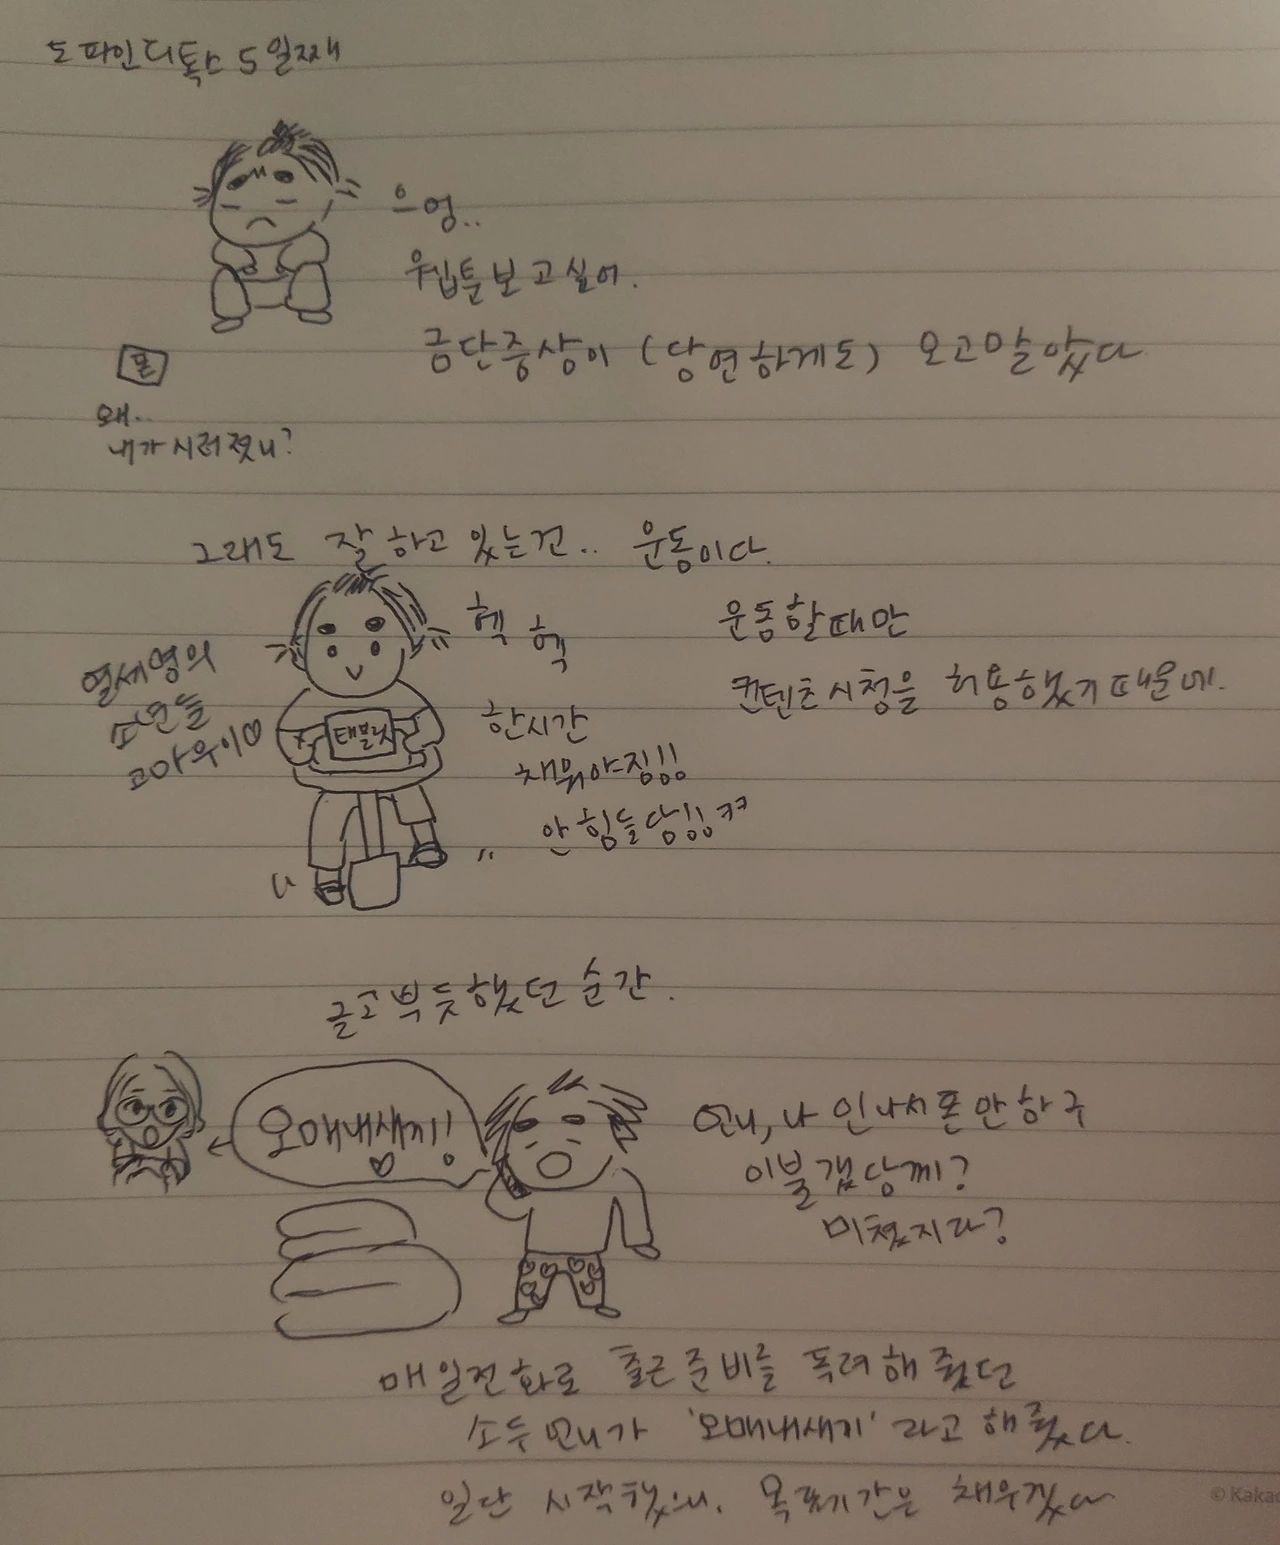 도파민디톡스 5일째
으엉..
웹툰보고싶어.
금단증상이 (당연하게도) 오고말았다
폰
왜..
내가 시러졌니?
그래도 잘하고 있는건.. 운동이다.
헥 헥
운동할때만
컨텐츠시청을 허용했기때문에.
열세명의
소년들
고마우이♡
태블릿
한시간
채워야징!!!
안힘들당!!! ㅋㅋ
글고 뿌듯했던 순간.
오매내새끼!
언니, 나 인나서 폰 안하구
이불갰당께?
미쳤지라?
매일전화로 출근준비를 독려해줬던
소두언니가 '오매내새끼' 라고 해줬다.
일단 시작했으니, 목표기간은 채우겠다
© Kakao